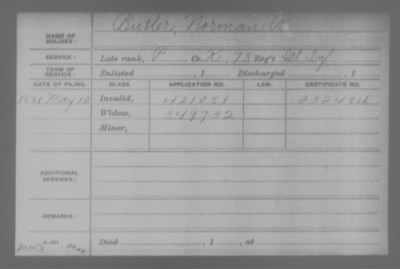 Butler, Norman
NAME OF SOLDIER:
SERVICE: Late rank, P Co. K, 78 Reg't Ill. Inf
TERM OF SERVICE: Enlisted , 1 Discharged , 1
DATE OF FILING. CLASS. APPLICATION NO. LAW. CERTIFICATE NO.
1881 May 10 Invalid, 421051
Widow, 549732
Minor,
ADDITIONAL SERVICES:
REMARKS:
Died , 1 , at